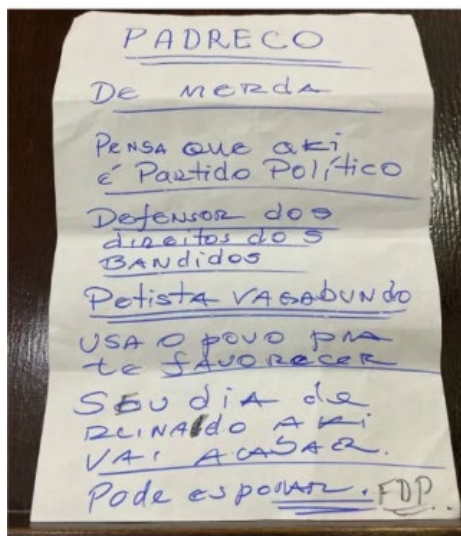 PADRECO
De merda
Pensa que aki
é Partido Político
Defensor dos
direitos dos
BANdidos
Petista VAGAbUNdo
USA O povo pra
te favorecer
Seu dia de
reinaldo aki
vai acabaer.
Pode esperar. FDP.